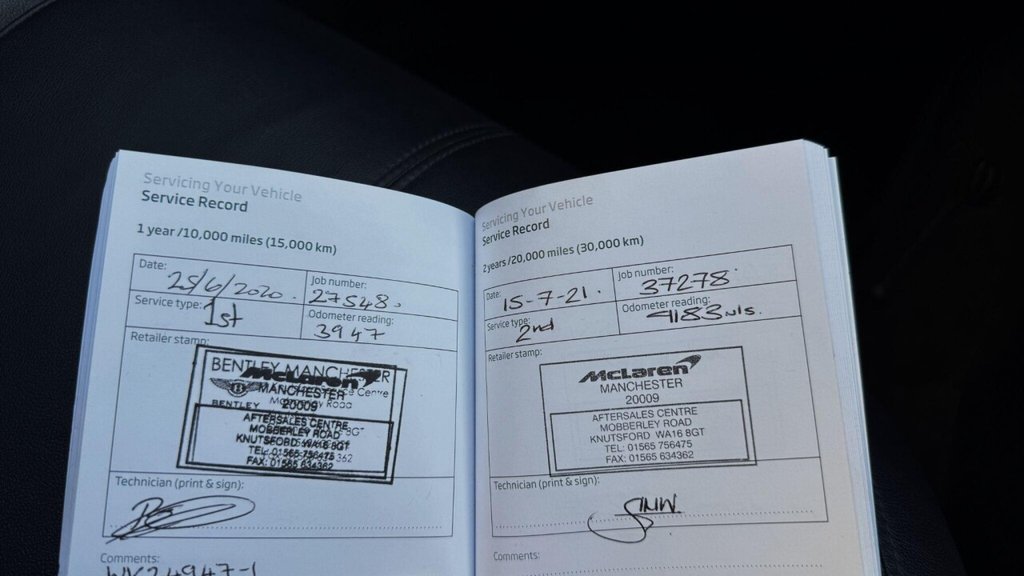 Servicing Your Vehicle
Service Record
1 year /10,000 miles (15,000 km)
Date:
25/6/2020.
Job number:
27548.
Service type:
1st
Odometer reading:
3947
Retailer stamp:
BENTLEY MANCHESTER
McLaren
MANCHESTER
20009
BENTLEY
AFTERSALES CENTRE
MOBBERLEY ROAD
KNUTSFORD WA16 8GT
TEL: 01565 756475
FAX: 01565 634362
Technician (print & sign):
Comments:
Servicing Your Vehicle
Service Record
2 years /20,000 miles (30,000 km)
Date:
15-7-21.
Job number:
37278.
Service type:
2nd
Odometer reading:
Retailer stamp:
McLaren
MANCHESTER
20009
AFTERSALES CENTRE
MOBBERLEY ROAD
KNUTSFORD WA16 8GT
TEL: 01565 756475
FAX: 01565 634362
Technician (print & sign):
Comments: